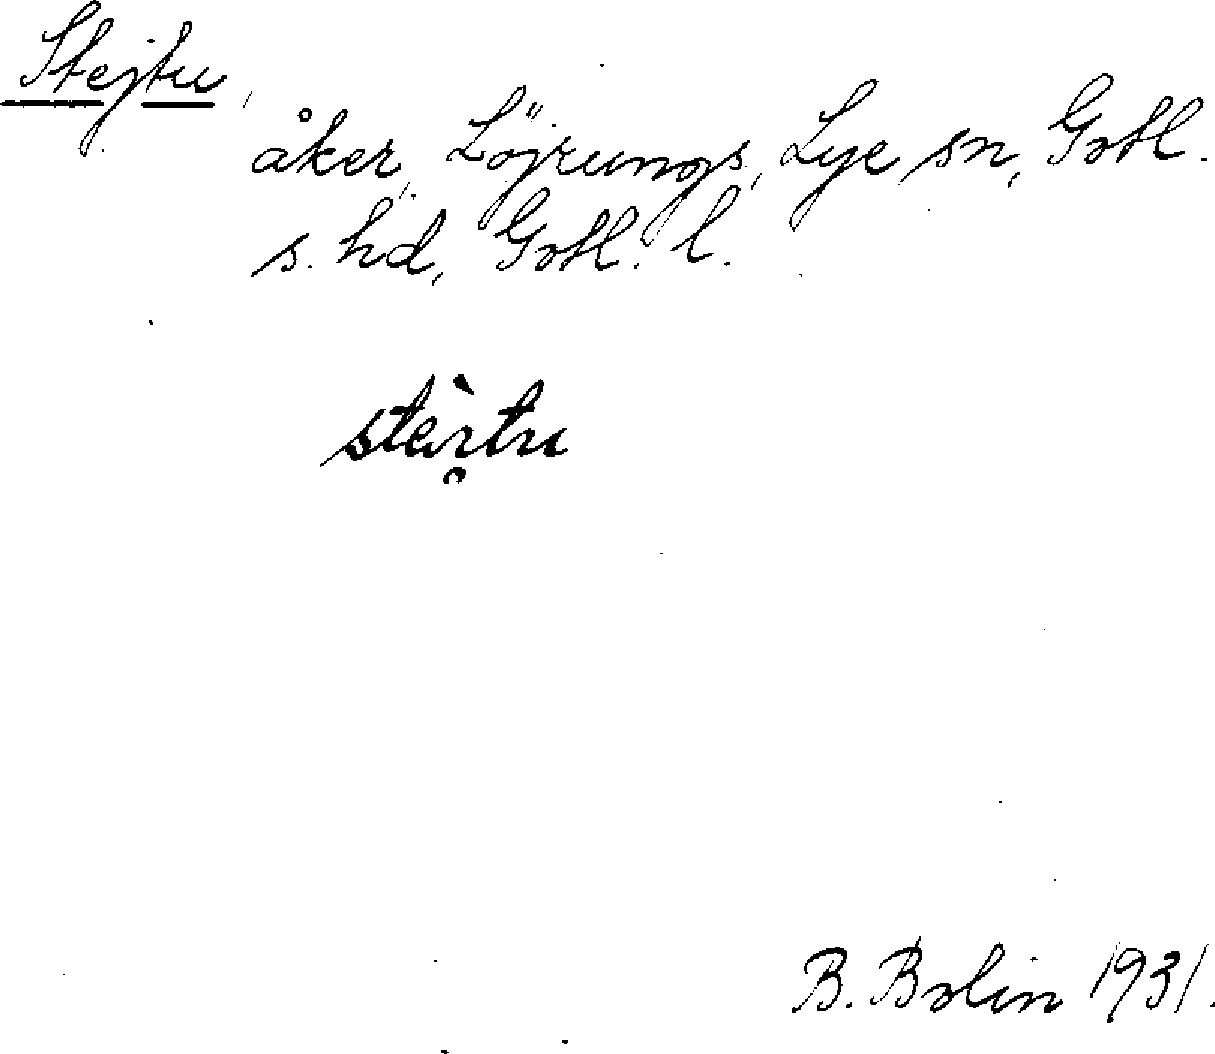 Stejtu,
åker, Löjrungs, Lye sn, Gotl.
s. hd, Gotl. l.
B. Bolin 1931.